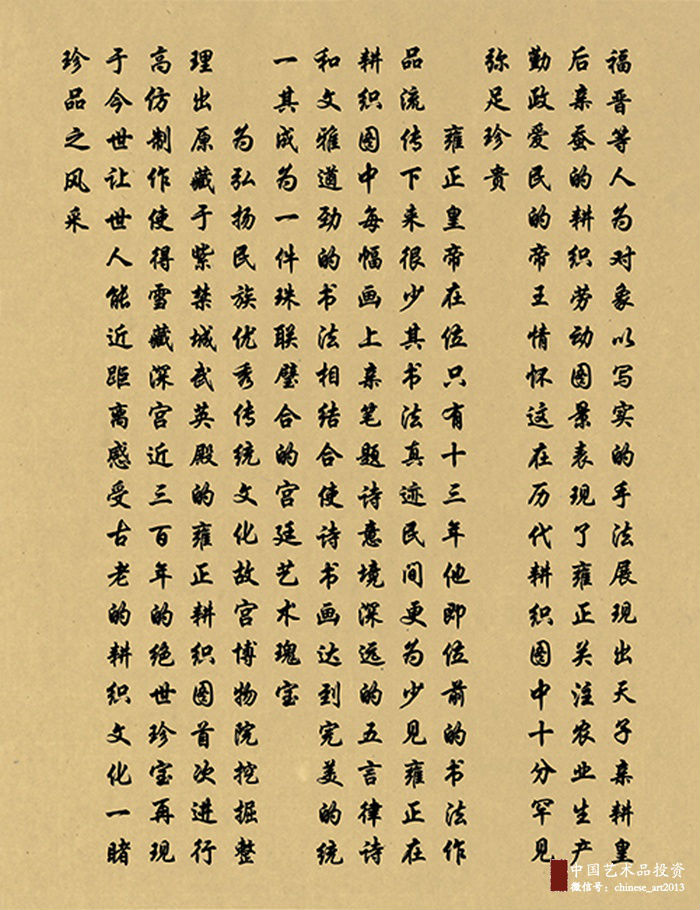 福晋等人为对象以写实的手法展现出天子亲耕皇
后亲蚕的耕织劳动图景表现了雍正关注农业生产
勤政爱民的帝王情怀这在历代耕织图中十分罕见
弥足珍贵
雍正皇帝在位只有十三年他即位前的书法作
品流传下来很少其书法真迹民间更为少见雍正在
耕织图中每幅画上亲笔题诗意境深远的五言律诗
和文雅道劲的书法相结合使诗书画达到完美的统
一其成为一件珠联璧合的宫廷艺术瑰宝
为弘扬民族优秀传统文化故宫博物院挖掘整
理出原藏于紫禁城武英殿的雍正耕织图首次进行
高仿制作使得雪藏深宫近三百年的绝世珍宝再现
于今世让世人能近距离感受古老的耕织文化一睹
珍品之风采
中国艺术品投资
微信号：chinese_art2013